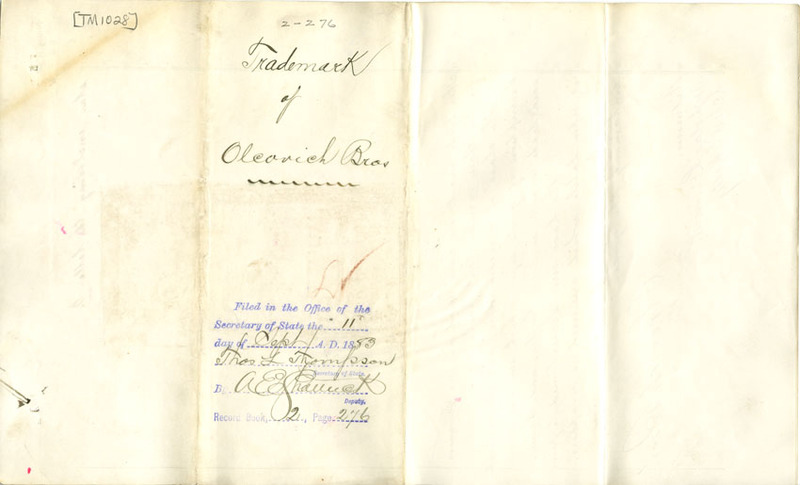 [TM1028]
2-276
Trademark
of
Olcovich Bros
Filed in the Office of the
Secretary of State the 11
day of Sept A. D. 1883
Thos L Thompson
Secretary of State.
By A E Shattuck
Deputy.
Record Book, 2, Page 276